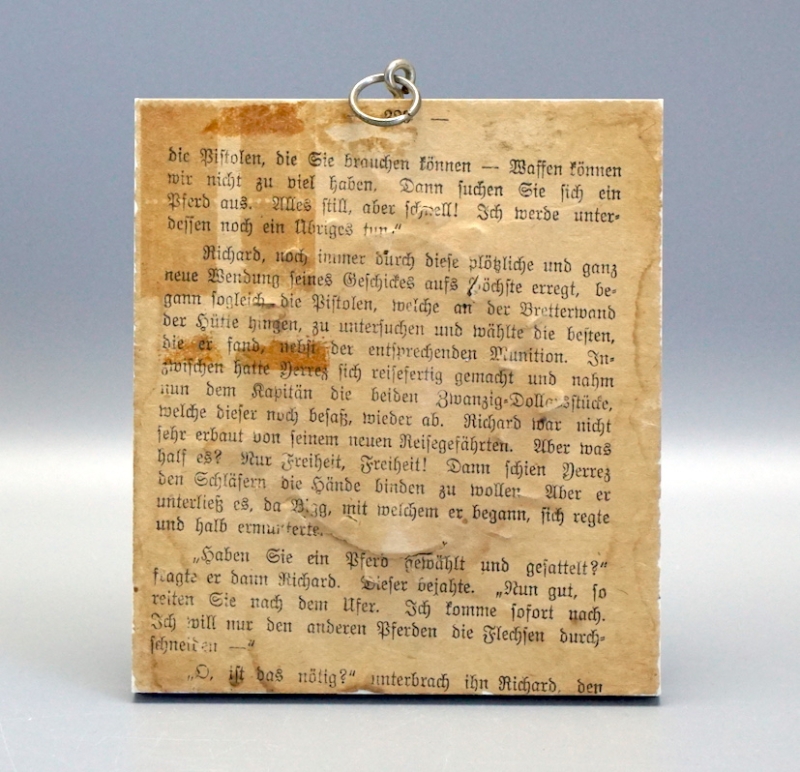 die Pistolen, die Sie brauchen können — Waffen können
wir nicht zu viel haben. Dann suchen Sie sich ein
Pferd aus. Alles still, aber schnell! Ich werde unter-
dessen noch ein Übriges tun."
Richard, noch immer durch diese plötzliche und ganz
neue Wendung seines Geschickes aufs höchste erregt, be-
gann sogleich die Pistolen, welche an der Bretterwand
der Hütte hingen, zu untersuchen und wählte die besten,
die er fand, nebst der entsprechenden Munition. In-
zwischen hatte Yerrez sich reisefertig gemacht und nahm
nun dem Kapitän die beiden Zwanzig-Dollarsstücke,
welche dieser noch besaß, wieder ab. Richard war nicht
sehr erbaut von seinem neuen Reisegefährten. Aber was
half es? Nur Freiheit, Freiheit! Dann schien Yerrez
den Schläfern die Hände binden zu wollen. Aber er
unterließ es, da Bigg, mit welchem er begann, sich regte
und halb ermunterte.
„Haben Sie ein Pferd gewählt und gesattelt?"
fragte er dann Richard. Dieser bejahte. „Nun gut, so
reiten Sie nach dem Ufer. Ich komme sofort nach.
Ich will nur den anderen Pferden die Flechsen durch-
schneiden —"
„O, ist das nötig?" unterbrach ihn Richard, den